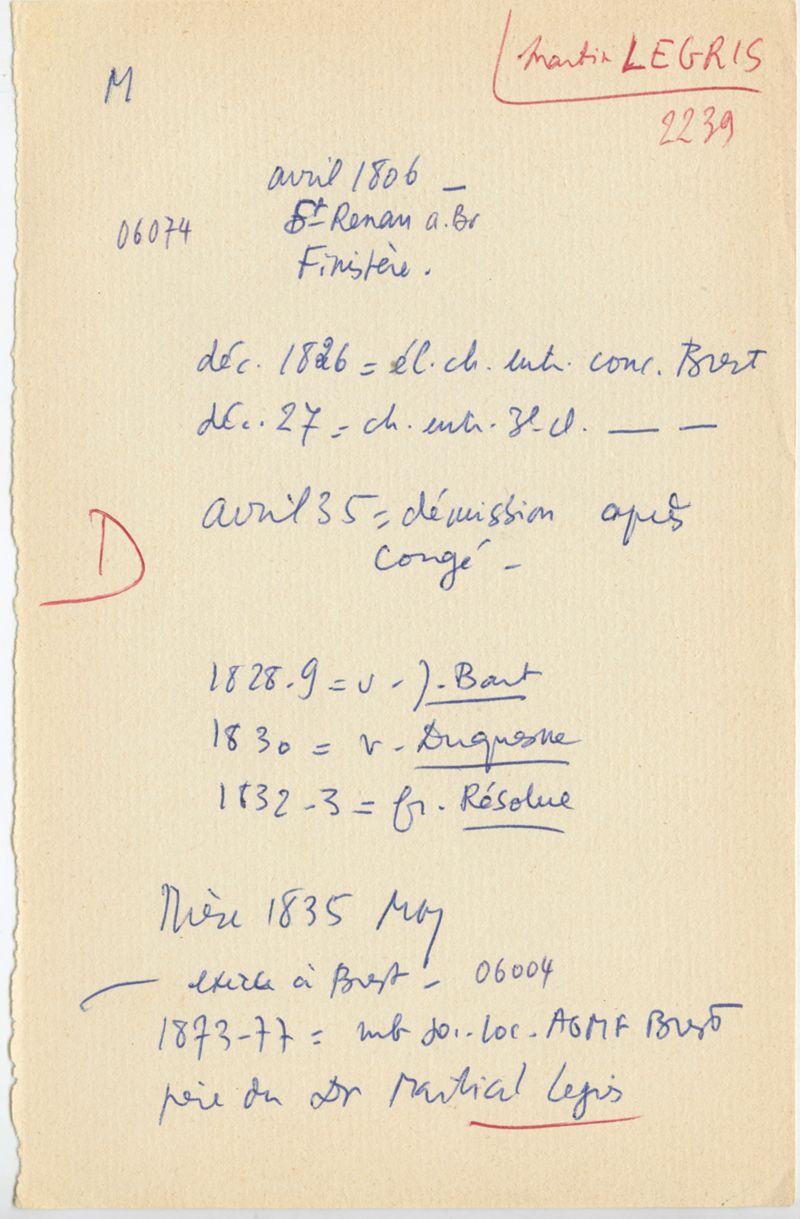 Martin LEGRIS
M
2239
avril 1806 -
06074
St Renan a. Br
Finistère.
déc. 1826 = él. ch. entr. conc. Brest
déc. 27 = ch. entr. 3e cl. — —
avril 35 = démission après
congé -
D
1828-9 = v - J. Bart
1830 = v - Duquesne
1832-3 = fr. Résolue
Thèse 1835
exerce à Brest - 06004
1873-77 = mb soc. loc. AGMF Brest
père du Dr Martial Legris